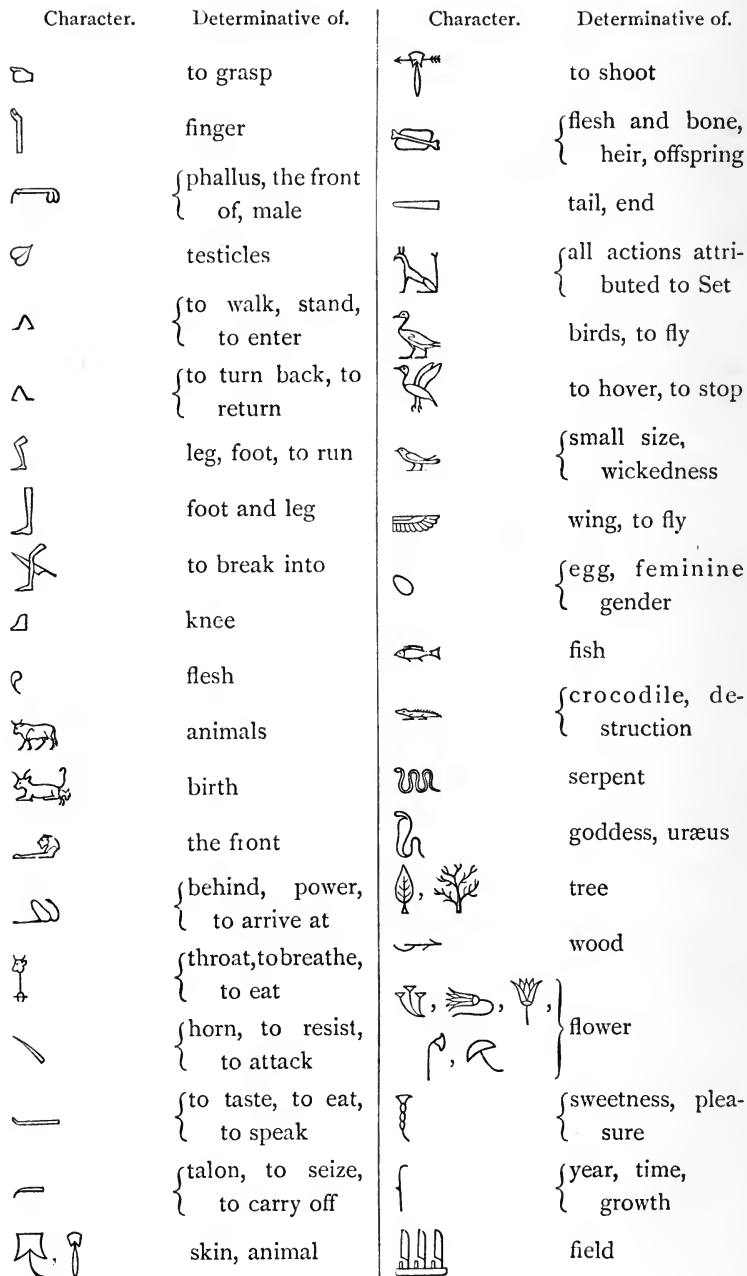 Character. Determinative of.
to grasp
finger
phallus, the front
of, male
testicles
to walk, stand,
to enter
to turn back, to
return
leg, foot, to run
foot and leg
to break into
knee
flesh
animals
birth
the front
behind, power,
to arrive at
throat, to breathe,
to eat
horn, to resist,
to attack
to taste, to eat,
to speak
talon, to seize,
to carry off
skin, animal
Character. Determinative of.
to shoot
flesh and bone,
heir, offspring
tail, end
all actions attri-
buted to Set
birds, to fly
to hover, to stop
small size,
wickedness
wing, to fly
egg, feminine
gender
fish
crocodile, de-
struction
serpent
goddess, uræus
tree
wood
flower
sweetness, plea-
sure
year, time,
growth
field